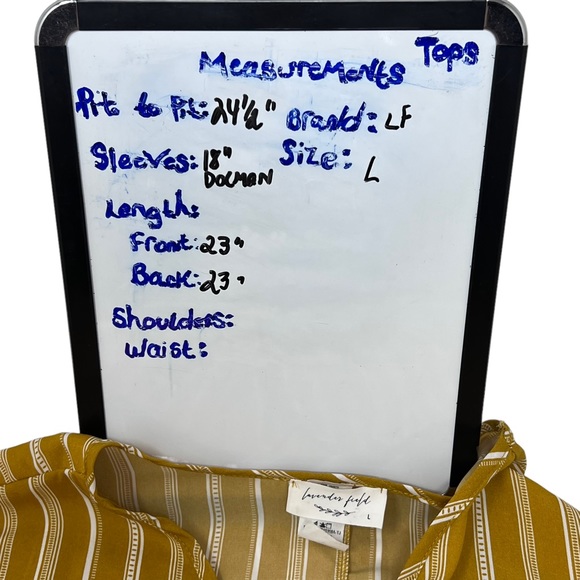 Measurements Tops
Pit to Pit: 24 1/2" Brand: LF
Sleeves: 18" Size: L
DOLMAN
Length:
Front: 23"
Back: 23"
Shoulders:
Waist:
lavender field
L